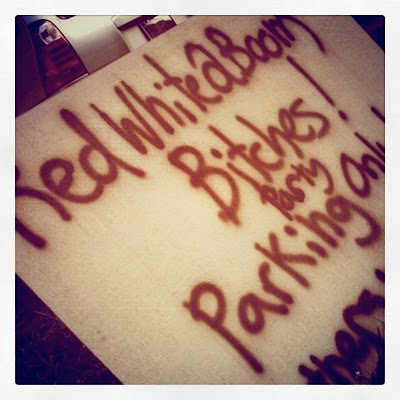 Red White & Boom
Bitches!
Party
Parking Only